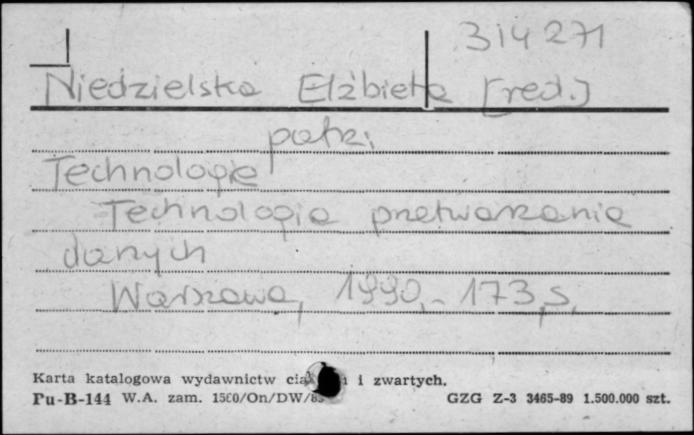 314271
Niedzielska Elżbieta [red.]
patrz:
Technologie
Technologia przetwarzania
danych
Warszawa, 1990, - 173, s.
Karta katalogowa wydawnictw i zwartych.
Pu-B-144 W.A. zam. 1500/On/DW/89 GZG Z-3 3465-89 1.500.000 szt.